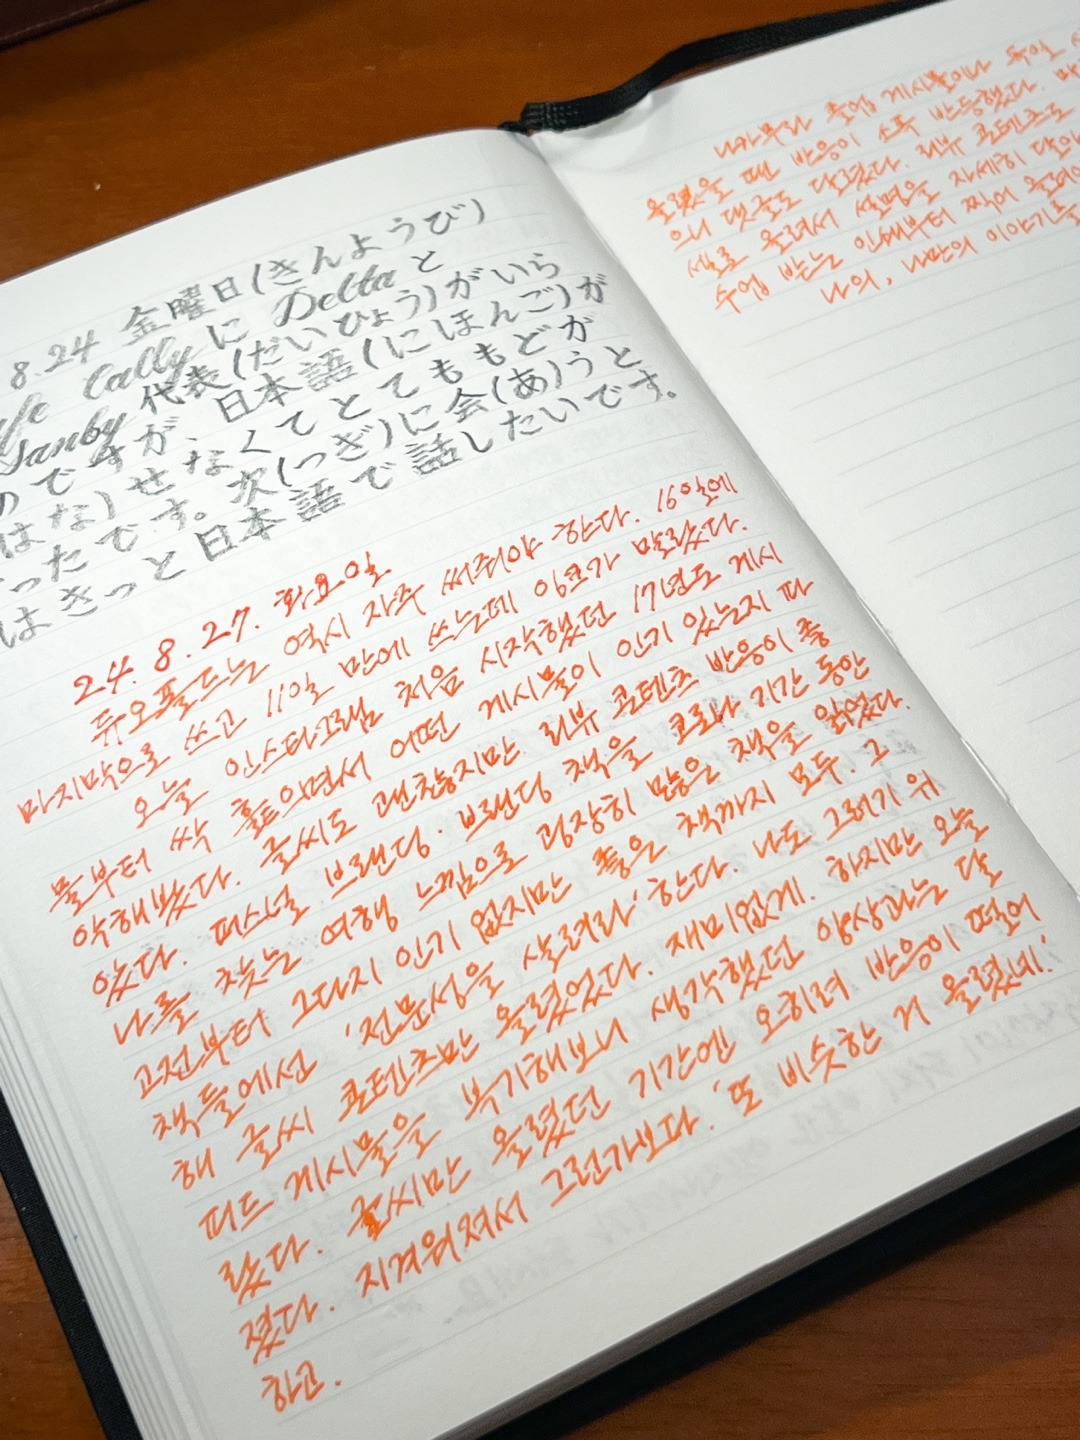 8.24 金曜日(きんようび)
Cally に Delta と
Yanby 代表(だいひょう)がいら
のですが、日本語(にほんご)が
はな)せなくてとてももどが
ったです。次(つぎ)に会(あ)うと
はきっと日本語で話したいです。
24. 8. 27. 화요일
듀오폴드는 역시 자주 써줘야 한다. 16일에
마지막으로 쓰고 11일 만에 쓰는데 잉크가 말랐다.
오늘 인스타그램 처음 시작했던 17년도 게시
물부터 싹 훑으면서 어떤 게시물이 인기 있는지 파
악해봤다. 글씨도 괜찮지만 리뷰 콘텐츠 반응이 좋
았다. 퍼스널 브랜딩·브랜딩 책을 코로나 기간 동안
나를 찾는 여행 느낌으로 굉장히 많은 책을 읽었다.
고전부터 그다지 인기 없지만 좋은 책까지 모두. 그
책들에선 '전문성을 살려라' 한다. 나도 그러기 위
해 글씨 콘텐츠만 올렸었다. 재미없게. 하지만 오늘
피드 게시물을 복기해보니 생각했던 양상과는 달
랐다. 글씨만 올렸던 기간엔 오히려 반응이 떨어
졌다. 지겨워져서 그런가보다. '또 비슷한 거 올렸네.'
하고.
나아무라 졸업 게시물이나 독일
올렸을 땐 반응이 소폭 반등했다.
으니 댓글도 달렸다. 리뷰 콘텐츠도
셀로 올려서 설명을 자세히
수업 받는 인쇄부터 찍어
나의, 나만의 이야기를